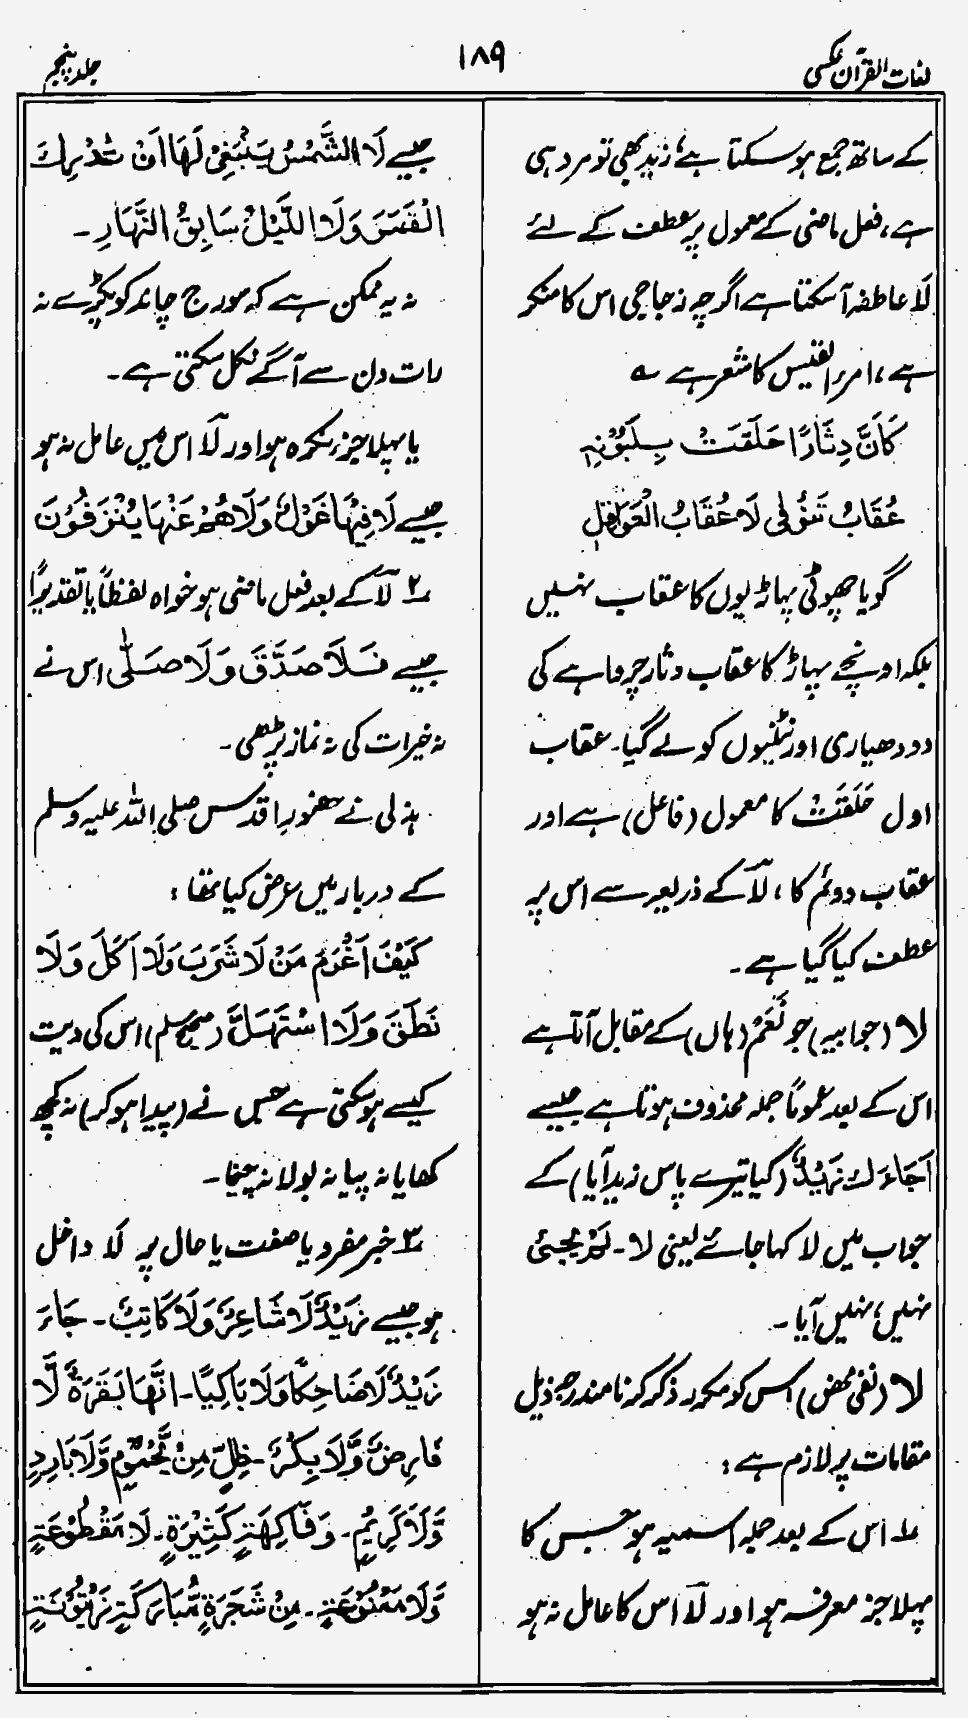 لغات القرآن عکسی
۱۸۹
جلد پنجم
کے ساتھ جمع ہو سکتا ہے، زید بھی تو مرد ہی
ہے، فعل ماضی کے معمول پر عطف کے لئے
لَا عاطفہ آسکتا ہے اگرچہ زجاجی اس کا منکر
ہے، امرء القیس کا شعر ہے ؎
كَأَنَّ دِثَارًا حَلَقَتْ بِلَبُوْنِہٖ
عُقَابُ تَنُوْفٰی لَا عُقَابُ الْقَوَاعِلِ
گویا چھوٹی پہاڑیوں کا عقاب نہیں
بلکہ اونچے پہاڑ کا عقاب دثار چرواہے کی
دودھیاری اونٹنیوں کو لے گیا۔ عقاب
اول حَلَقَتْ کا معمول (فاعل) ہے اور
عقاب دوئم کا، لَا کے ذریعہ سے اس پر
عطف کیا گیا ہے۔
لا (جوابیہ) جو نَعَمْ (ہاں) کے مقابل آتا ہے
اس کے بعد عموماً جملہ محذوف ہوتا ہے جیسے
اَجَاءَكَ زَيْدٌ (کیا تیرے پاس زید آیا) کے
جواب میں لا کہا جائے یعنی لا۔ لَمْ يَجِئْ
نہیں، نہیں آیا۔
لا (نفی محض) اس کو مکرر ذکر کرنا مندرجہ ذیل
مقامات پر لازم ہے:
۱؎ اس کے بعد جملہ اسمیہ ہو جس کا
پہلا جز معرفہ ہو اور لَا اس کا عامل نہ ہو
جیسے لَا الشَّمْسُ يَنْبَغِيْ لَهَا اَنْ تُدْرِكَ
الْقَمَرَ وَلَا اللَّيْلُ سَابِقُ النَّهَارِ۔
نہ یہ ممکن ہے کہ سورج چاند کو پکڑے نہ
رات دن سے آگے نکل سکتی ہے۔
یا پہلا جزء نکرہ ہو اور لَا اس میں عامل نہ ہو
جیسے لَا فِيْهَا غَوْلٌ وَلَا هُمْ عَنْهَا يُنْزَفُوْنَ
۲؎ لَا کے بعد فعل ماضی ہو خواہ لفظاً یا تقدیراً
جیسے فَلَا صَدَّقَ وَلَا صَلّٰى اس نے
نہ خیرات کی نہ نماز پڑھی۔
ہذلی نے حضور اقدس صلی اللہ علیہ وسلم
کے دربار میں عرض کیا تھا:
كَيْفَ اَغْرَمُ مَنْ لَا شَرِبَ وَلَا اَكَلَ وَلَا
نَطَقَ وَلَا اسْتَهَلَّ (صحیح مسلم) اس کی دیت
کیسے ہوسکتی ہے جس نے (پیدا ہوکر) نہ کچھ
کھایا نہ پیا نہ بولا نہ چیخا۔
۳؎ خبر مفرد یا صفت یا حال پر لَا داخل
ہو جیسے زَيْدٌ لَا شَاعِرٌ وَلَا كَاتِبٌ۔ جَاءَ
زَيْدٌ لَا ضَاحِكًا وَلَا بَاكِيًا۔ اِنَّهَا بَقَرَةٌ لَّا
فَارِضٌ وَّلَا بِكْرٌ۔ ظِلٍّ مِنْ يَّحْمُوْمٍ وَّلَا بَارِدٍ
وَّلَا كَرِيْمٍ۔ وَفَاكِهَةٍ كَثِيْرَةٍ۔ لَا مَقْطُوْعَةٍ
وَّلَا مَمْنُوْعَةٍ۔ مِنْ شَجَرَةٍ مُّبَارَكَةٍ زَيْتُوْنَةٍ